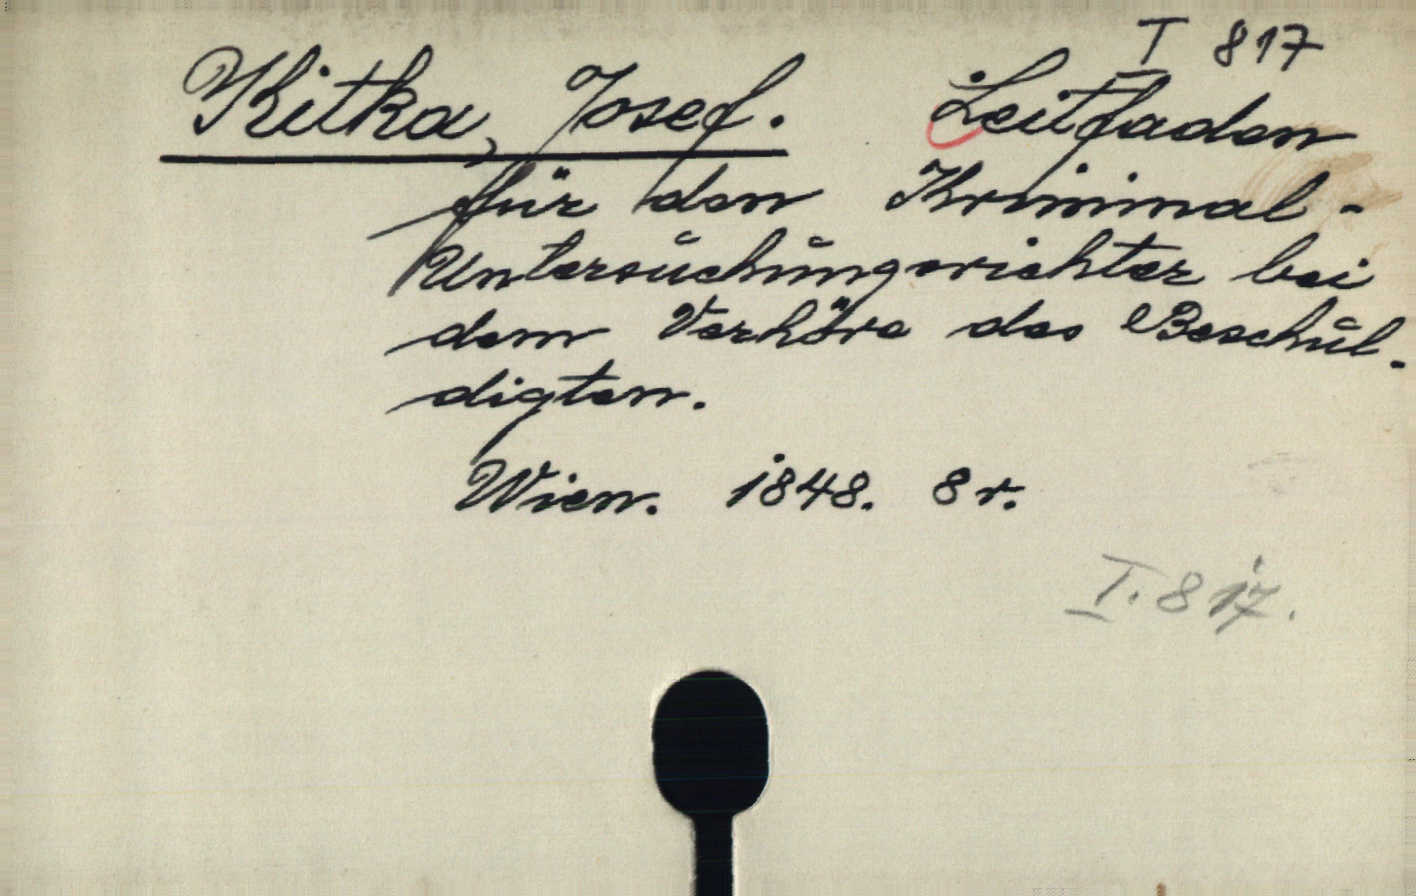 I 817
Kitka, Josef. Leitfaden
für den Kriminal-
Untersuchungsrichter bei
dem Verhöre des Beschul-
digten.
Wien. 1848. 8r.
I. 817.